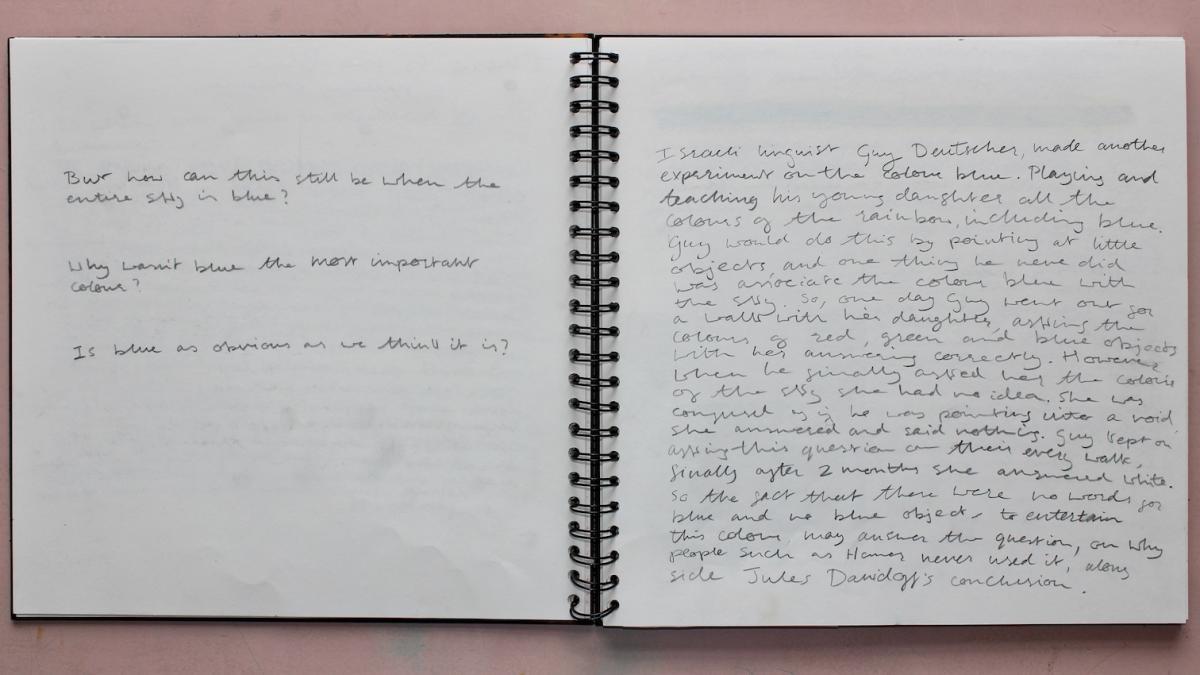 But how can this still be when the
entire sky is blue?
Why wasn't blue the most important
colour?
Is blue as obvious as we think it is?
Israeli linguist Guy Deutscher, made another
experiment on the colour blue. Playing and
teaching his young daughter all the
colours of the rainbow, including blue.
Guy would do this by pointing at little
objects, and one thing he never did
was associate the colour blue with
the sky. So, one day Guy went out for
a walk with her daughter, asking the
colours of red, green and blue objects
with her answering correctly. However,
when he finally asked her the colour
of the sky she had no idea. She was
confused as if he was pointing into a void,
she answered and said nothing. Guy kept on
asking this question on their every walk,
finally after 2 months she answered white.
So the fact that there were no words for
blue and no blue objects to entertain
this colour, may answer the question, on why
people such as Homer never used it, along
side Jules Davidoff's conclusion.